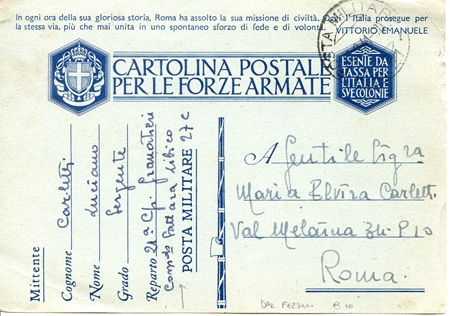 In ogni ora della sua gloriosa storia, Roma ha assolto la sua missione di civiltà. l'Italia prosegue per
la stessa via, più che mai unita in uno spontaneo sforzo di fede e di volontà. VITTORIO EMANUELE
POSTA MILITARE
CARTOLINA POSTALE
PER LE FORZE ARMATE
ESENTE DA
TASSA PER
L'ITALIA E
SUE COLONIE
Mittente
Cognome Carletti
Nome Luciano
Grado Sergente
Reparto 2a Cp. Granatieri
Sahara libico
POSTA MILITARE 27 C
A Gentile Sig.ra
Maria Elvira Carletti
Val Melaina 
Roma
DAL FEZZAN